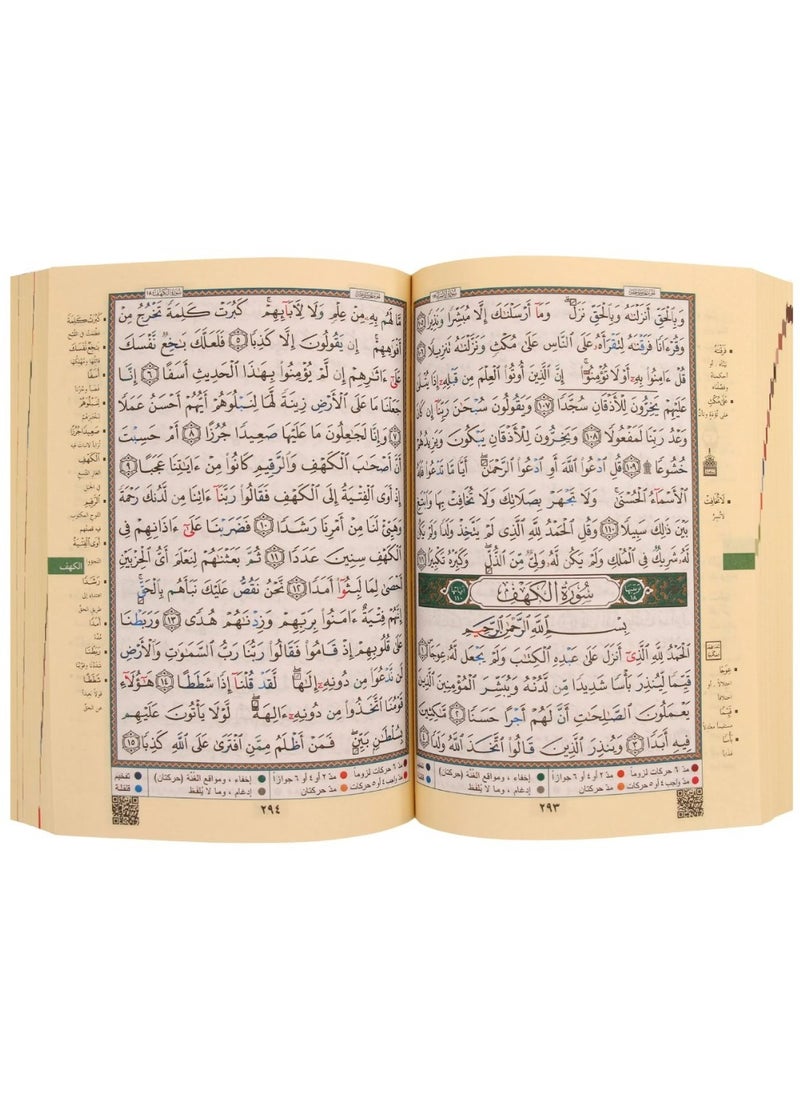 وَبِالْحَقِّ أَنزَلْنَٰهُ وَبِالْحَقِّ نَزَلَ ۗ وَمَا أَرْسَلْنَٰكَ إِلَّا مُبَشِّرًا وَنَذِيرًا ١٠٥
وَقُرْءَانًا فَرَقْنَٰهُ لِتَقْرَأَهُۥ عَلَى النَّاسِ عَلَىٰ مُكْثٍ وَنَزَّلْنَٰهُ تَنزِيلًا
قُلْ ءَامِنُوا بِهِۦٓ أَوْ لَا تُؤْمِنُوٓا ۚ إِنَّ الَّذِينَ أُوتُوا الْعِلْمَ مِن قَبْلِهِۦٓ إِذَا يُتْلَىٰ
عَلَيْهِمْ يَخِرُّونَ لِلْأَذْقَانِ سُجَّدًا ١٠٧ وَيَقُولُونَ سُبْحَٰنَ رَبِّنَا إِن كَانَ
وَعْدُ رَبِّنَا لَمَفْعُولًا ١٠٨ وَيَخِرُّونَ لِلْأَذْقَانِ يَبْكُونَ وَيَزِيدُهُمْ
خُشُوعًا ۩ ١٠٩ قُلِ ادْعُوا اللَّهَ أَوِ ادْعُوا الرَّحْمَٰنَ ۖ أَيًّا مَّا تَدْعُوا فَلَهُ
الْأَسْمَاءُ الْحُسْنَىٰ ۚ وَلَا تَجْهَرْ بِصَلَاتِكَ وَلَا تُخَافِتْ بِهَا وَابْتَغِ
بَيْنَ ذَٰلِكَ سَبِيلًا ١١٠ وَقُلِ الْحَمْدُ لِلَّهِ الَّذِي لَمْ يَتَّخِذْ وَلَدًا وَلَمْ يَكُن
لَّهُۥ شَرِيكٌ فِي الْمُلْكِ وَلَمْ يَكُن لَّهُۥ وَلِيٌّ مِّنَ الذُّلِّ ۖ وَكَبِّرْهُ تَكْبِيرًا
ترتيبها ١٨ سُورَةُ الْكَهْفِ آياتها ١١٠
بِسْمِ اللَّهِ الرَّحْمَٰنِ الرَّحِيمِ
الْحَمْدُ لِلَّهِ الَّذِي أَنزَلَ عَلَىٰ عَبْدِهِ الْكِتَٰبَ وَلَمْ يَجْعَل لَّهُۥ عِوَجَا
قَيِّمًا لِّيُنذِرَ بَأْسًا شَدِيدًا مِّن لَّدُنْهُ وَيُبَشِّرَ الْمُؤْمِنِينَ الَّذِينَ
يَعْمَلُونَ الصَّٰلِحَٰتِ أَنَّ لَهُمْ أَجْرًا حَسَنًا ٢ مَّٰكِثِينَ
فِيهِ أَبَدًا ٣ وَيُنذِرَ الَّذِينَ قَالُوا اتَّخَذَ اللَّهُ وَلَدًا
مدّ ٦ حركات لزوماً مدّ ٢ أو ٤ أو ٦ جوازاً إخفاء ، ومواقع الغُنّة (حركتان)
مدّ واجب ٤ أو ٥ حركات مدّ حركتان إدغام ، وما لا يُلفظ
٢٩٣
فَرَقْنَٰهُ
عَلَىٰ مُكْثٍ
لَا تُخَافِتْ
عِوَجًا
قَيِّمًا
بَأْسًا
سُورَةُ الْكَهْفِ ١٨
مَّا لَهُم بِهِۦ مِنْ عِلْمٍ وَلَا لِآبَائِهِمْ ۚ كَبُرَتْ كَلِمَةً تَخْرُجُ مِنْ
أَفْوَٰهِهِمْ ۚ إِن يَقُولُونَ إِلَّا كَذِبًا ٥ فَلَعَلَّكَ بَٰخِعٌ نَّفْسَكَ
عَلَىٰ ءَاثَٰرِهِمْ إِن لَّمْ يُؤْمِنُوا بِهَٰذَا الْحَدِيثِ أَسَفًا ٦ إِنَّا
جَعَلْنَا مَا عَلَى الْأَرْضِ زِينَةً لَّهَا لِنَبْلُوَهُمْ أَيُّهُمْ أَحْسَنُ عَمَلًا
٧ وَإِنَّا لَجَٰعِلُونَ مَا عَلَيْهَا صَعِيدًا جُرُزًا ٨ أَمْ حَسِبْتَ
أَنَّ أَصْحَٰبَ الْكَهْفِ وَالرَّقِيمِ كَانُوا مِنْ ءَايَٰتِنَا عَجَبًا ٩
إِذْ أَوَى الْفِتْيَةُ إِلَى الْكَهْفِ فَقَالُوا رَبَّنَا ءَاتِنَا مِن لَّدُنكَ رَحْمَةً
وَهَيِّئْ لَنَا مِنْ أَمْرِنَا رَشَدًا ١٠ فَضَرَبْنَا عَلَىٰ ءَاذَانِهِمْ فِي
الْكَهْفِ سِنِينَ عَدَدًا ١١ ثُمَّ بَعَثْنَٰهُمْ لِنَعْلَمَ أَيُّ الْحِزْبَيْنِ
أَحْصَىٰ لِمَا لَبِثُوا أَمَدًا ١٢ نَّحْنُ نَقُصُّ عَلَيْكَ نَبَأَهُم بِالْحَقِّ ۚ
إِنَّهُمْ فِتْيَةٌ ءَامَنُوا بِرَبِّهِمْ وَزِدْنَٰهُمْ هُدًى ١٣ وَرَبَطْنَا
عَلَىٰ قُلُوبِهِمْ إِذْ قَامُوا فَقَالُوا رَبُّنَا رَبُّ السَّمَٰوَٰتِ وَالْأَرْضِ
لَن نَّدْعُوَا مِن دُونِهِۦٓ إِلَٰهًا ۖ لَّقَدْ قُلْنَا إِذًا شَطَطًا ١٤ هَٰؤُلَاءِ
قَوْمُنَا اتَّخَذُوا مِن دُونِهِۦٓ ءَالِهَةً ۖ لَّوْلَا يَأْتُونَ عَلَيْهِم
بِسُلْطَٰنٍ بَيِّنٍ ۖ فَمَنْ أَظْلَمُ مِمَّنِ افْتَرَىٰ عَلَى اللَّهِ كَذِبًا ١٥
مدّ ٦ حركات لزوماً مدّ ٢ أو ٤ أو ٦ جوازاً إخفاء ، ومواقع الغُنّة (حركتان) تفخيم
مدّ واجب ٤ أو ٥ حركات مدّ حركتان إدغام ، وما لا يُلفظ قلقلة
٢٩٤
كَبُرَتْ كَلِمَةً
بَٰخِعٌ نَّفْسَكَ
أَسَفًا
لِنَبْلُوَهُمْ
صَعِيدًا جُرُزًا
الْكَهْفِ
الرَّقِيمِ
أَوَى الْفِتْيَةُ
الكهف
رَشَدًا
أَمَدًا
رَبَطْنَا
شَطَطًا